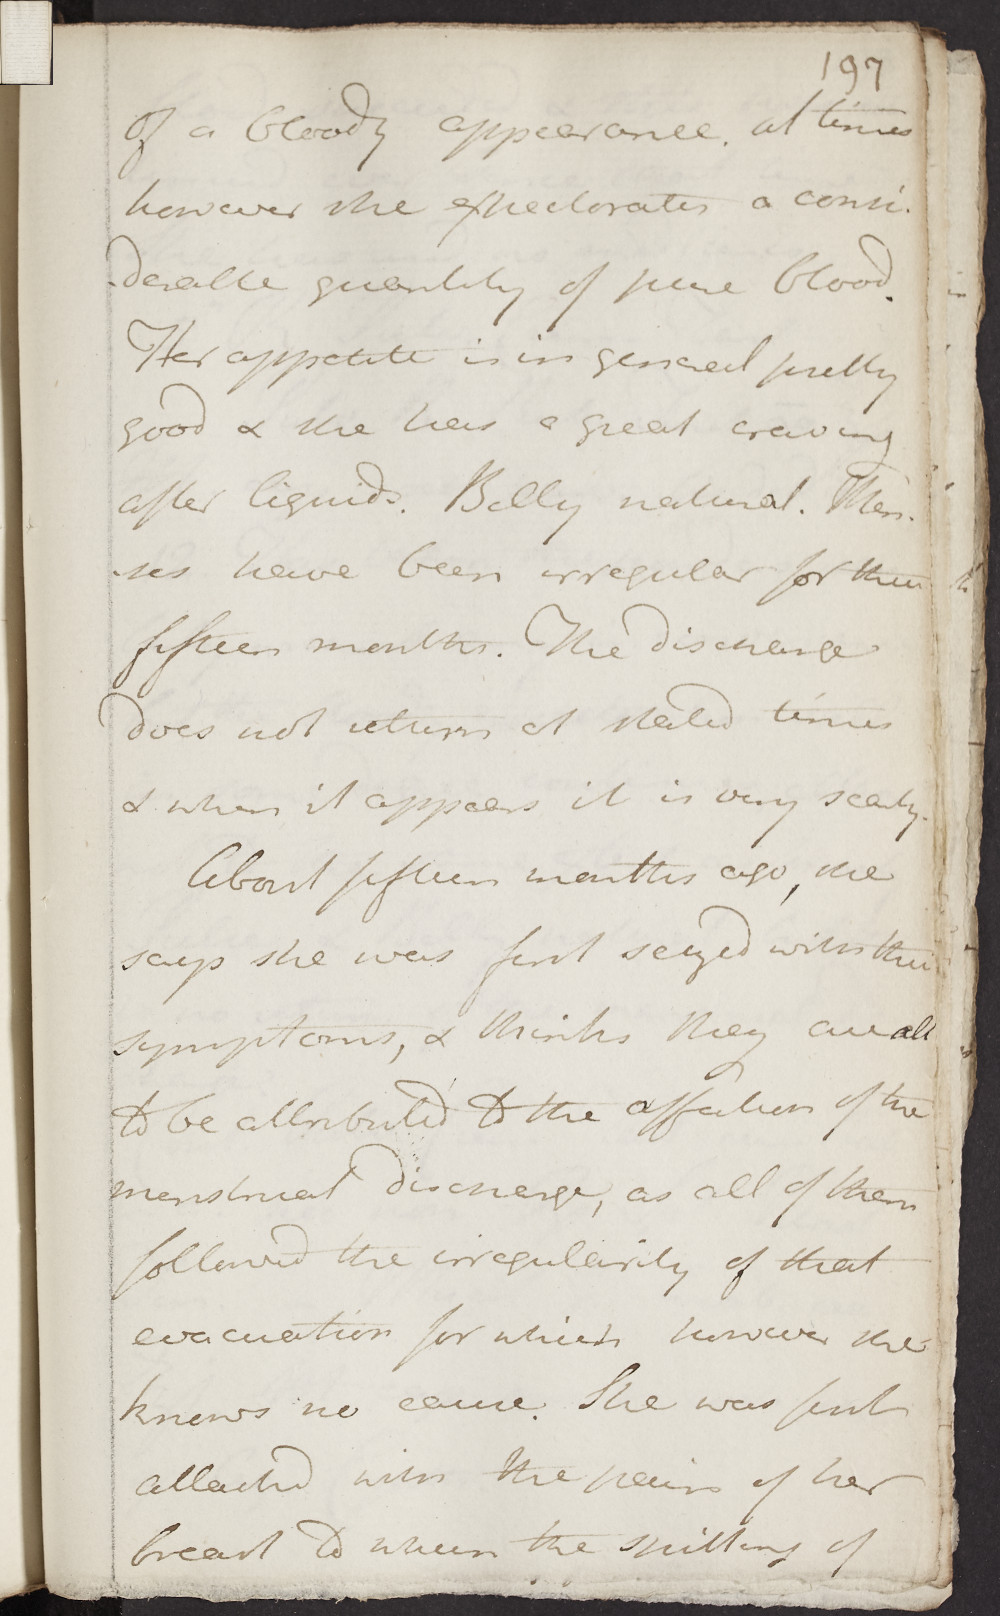 197
of a bloody appearance. at times
however she expectorates a consi-
derable quantity of pure blood.
Her appetite is in general pretty
good & she has a great craving
after liquids. Belly natural. Men-
ses have been irregular for these
fifteen months. The discharge
does not return at stated times
& when it appears it is very scanty.
About fifteen months ago, she
says she was first seized with these
symptoms, & thinks they are all
to be attributed to the affection of the
menstrual discharge, as all of them
followed the irregularity of that
evacuation for which however she
knows no cause. She was first
attacked with the pain of her
breast to whom the spitting of